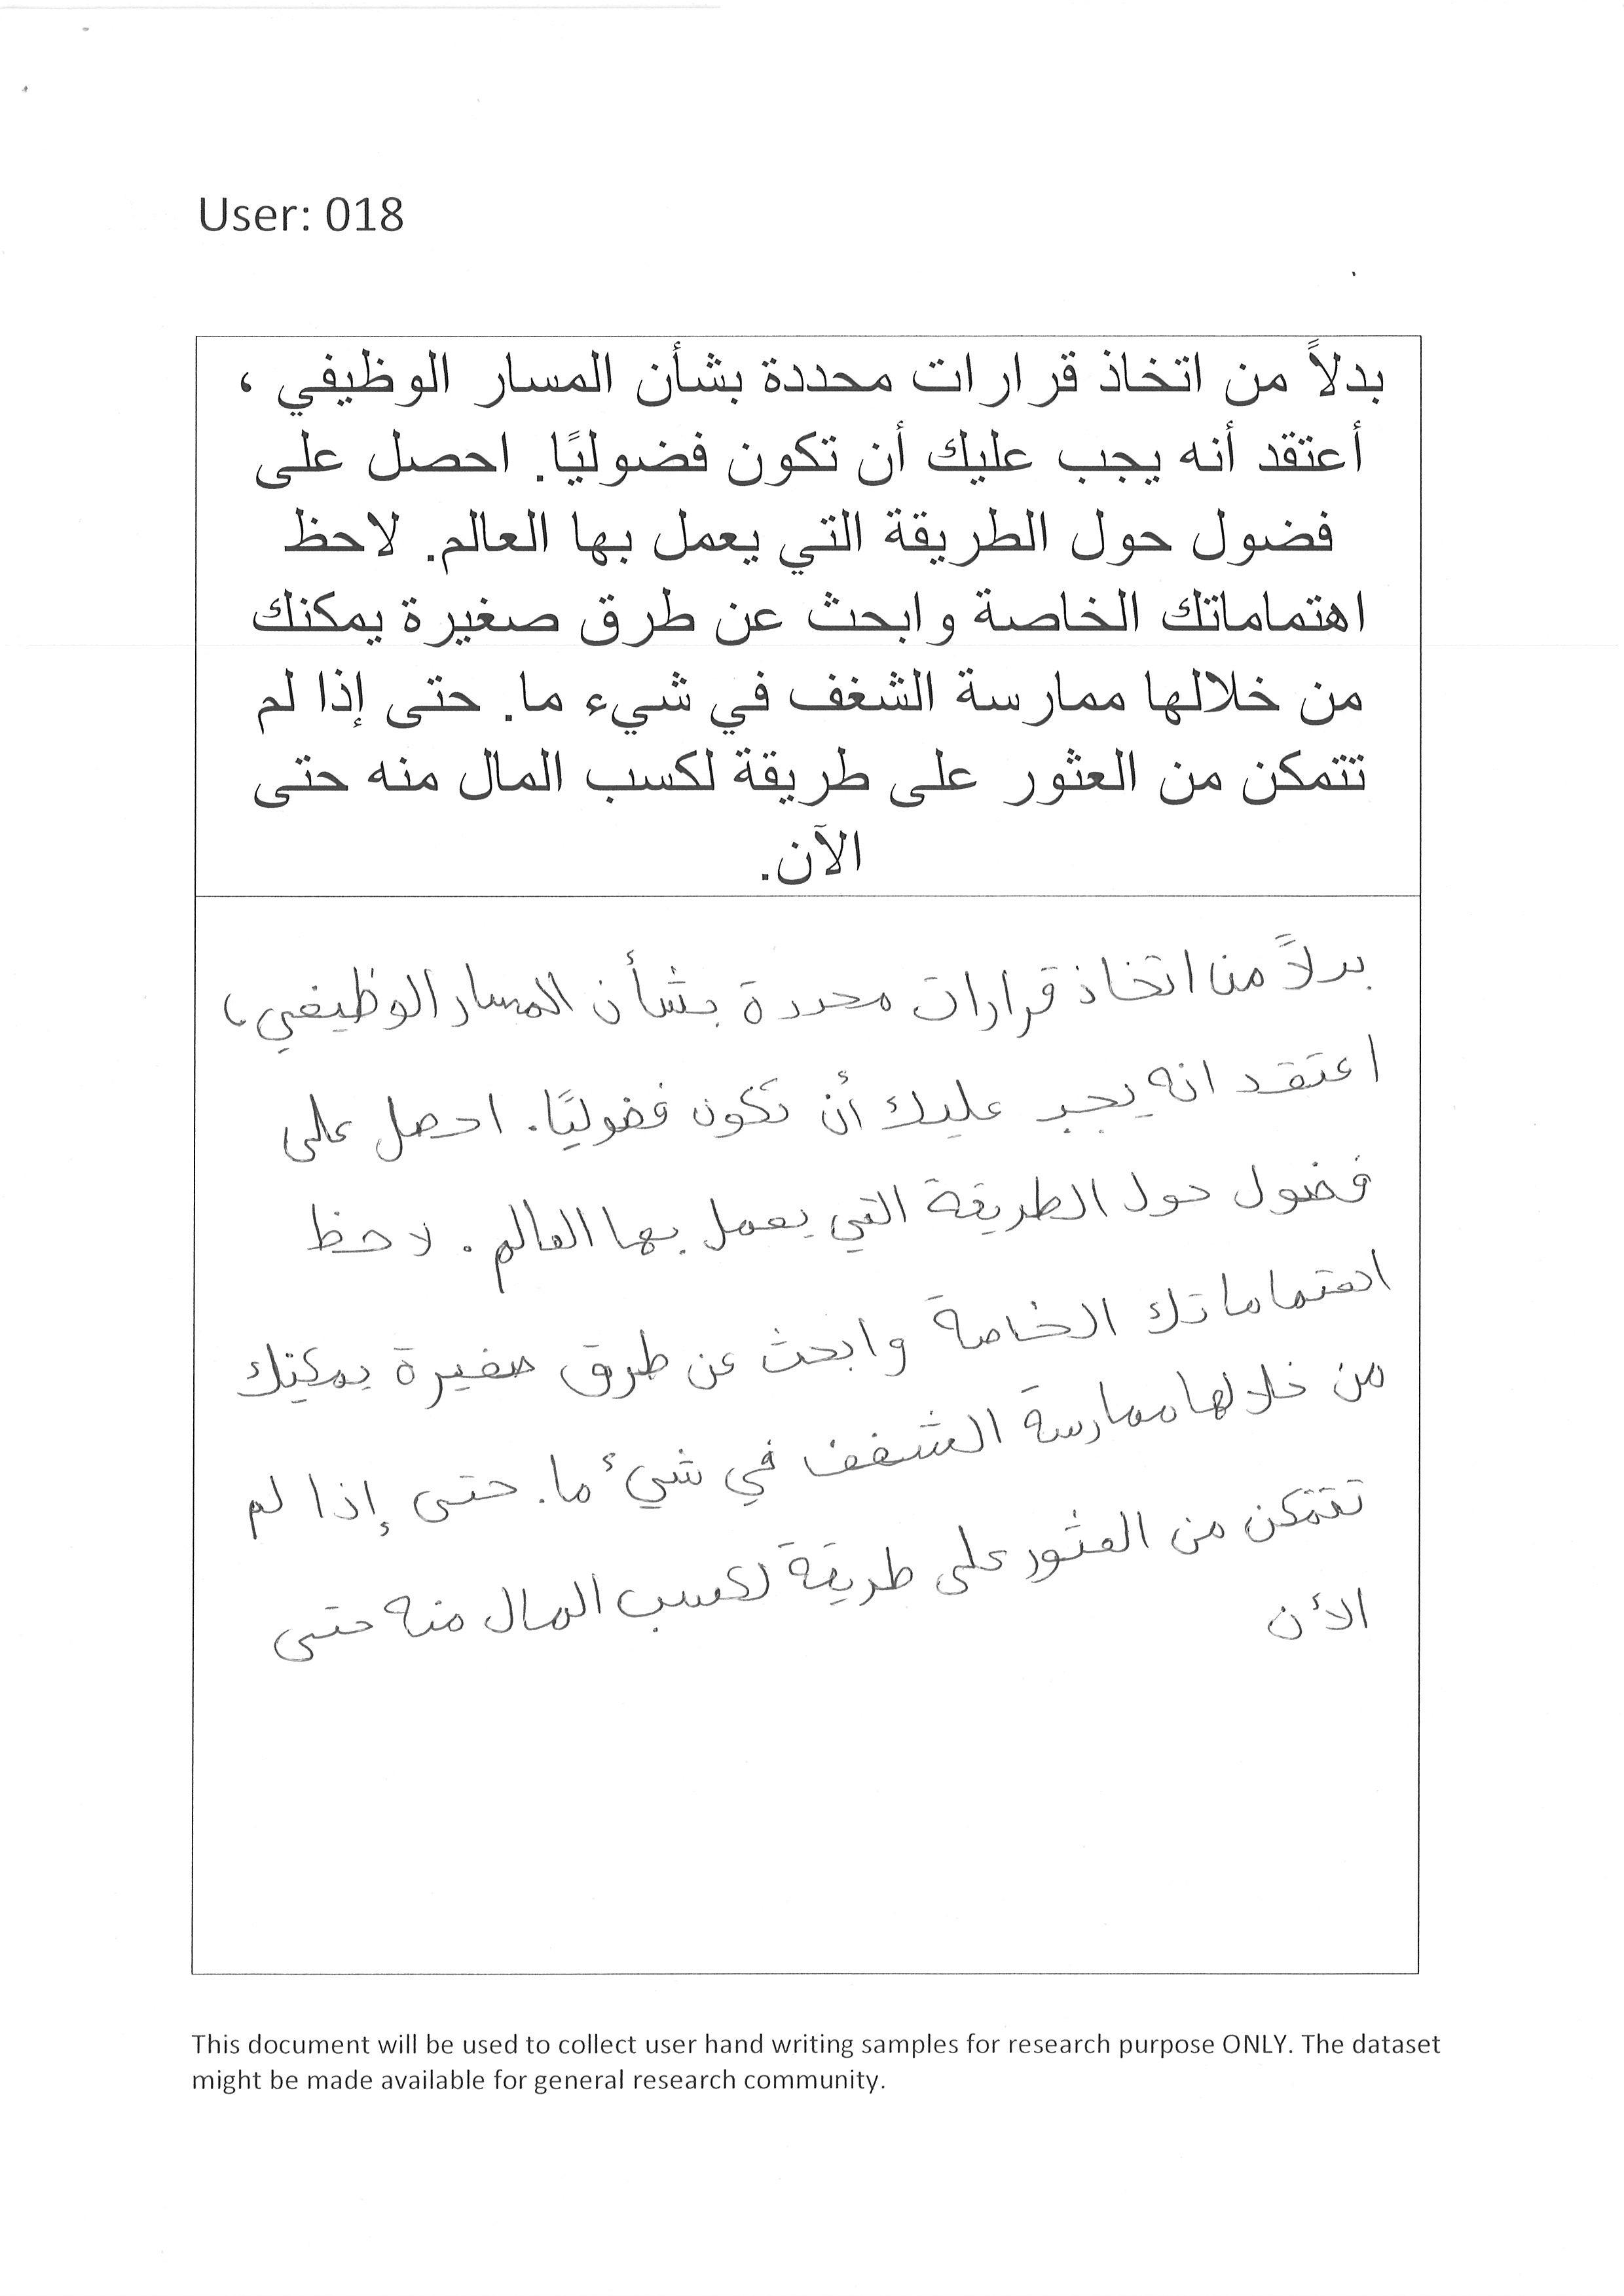 User: 018
بدلاً من اتخاذ قرارات محددة بشأن المسار الوظيفي ،
أعتقد أنه يجب عليك أن تكون فضوليًا. احصل على
فضول حول الطريقة التي يعمل بها العالم. لاحظ
اهتماماتك الخاصة وابحث عن طرق صغيرة يمكنك
من خلالها ممارسة الشغف في شيء ما. حتى إذا لم
تتمكن من العثور على طريقة لكسب المال منه حتى
الآن.
بدلاً من اتخاذ قرارات محددة بشأن المسار الوظيفي ،
اعتقد انه يجب عليك أن تكون فضوليًا. احصل على
فضول حول الطريقة التي يعمل بها العالم. لاحظ
اهتماماتك الخاصة وابحث عن طرق صغيرة يمكنك
من خلالها ممارسة الشغف في شيء ما. حتى إذا لم
تتمكن من العثور على طريقة لكسب المال منه حتى
الأن
This document will be used to collect user hand writing samples for research purpose ONLY. The dataset
might be made available for general research community.